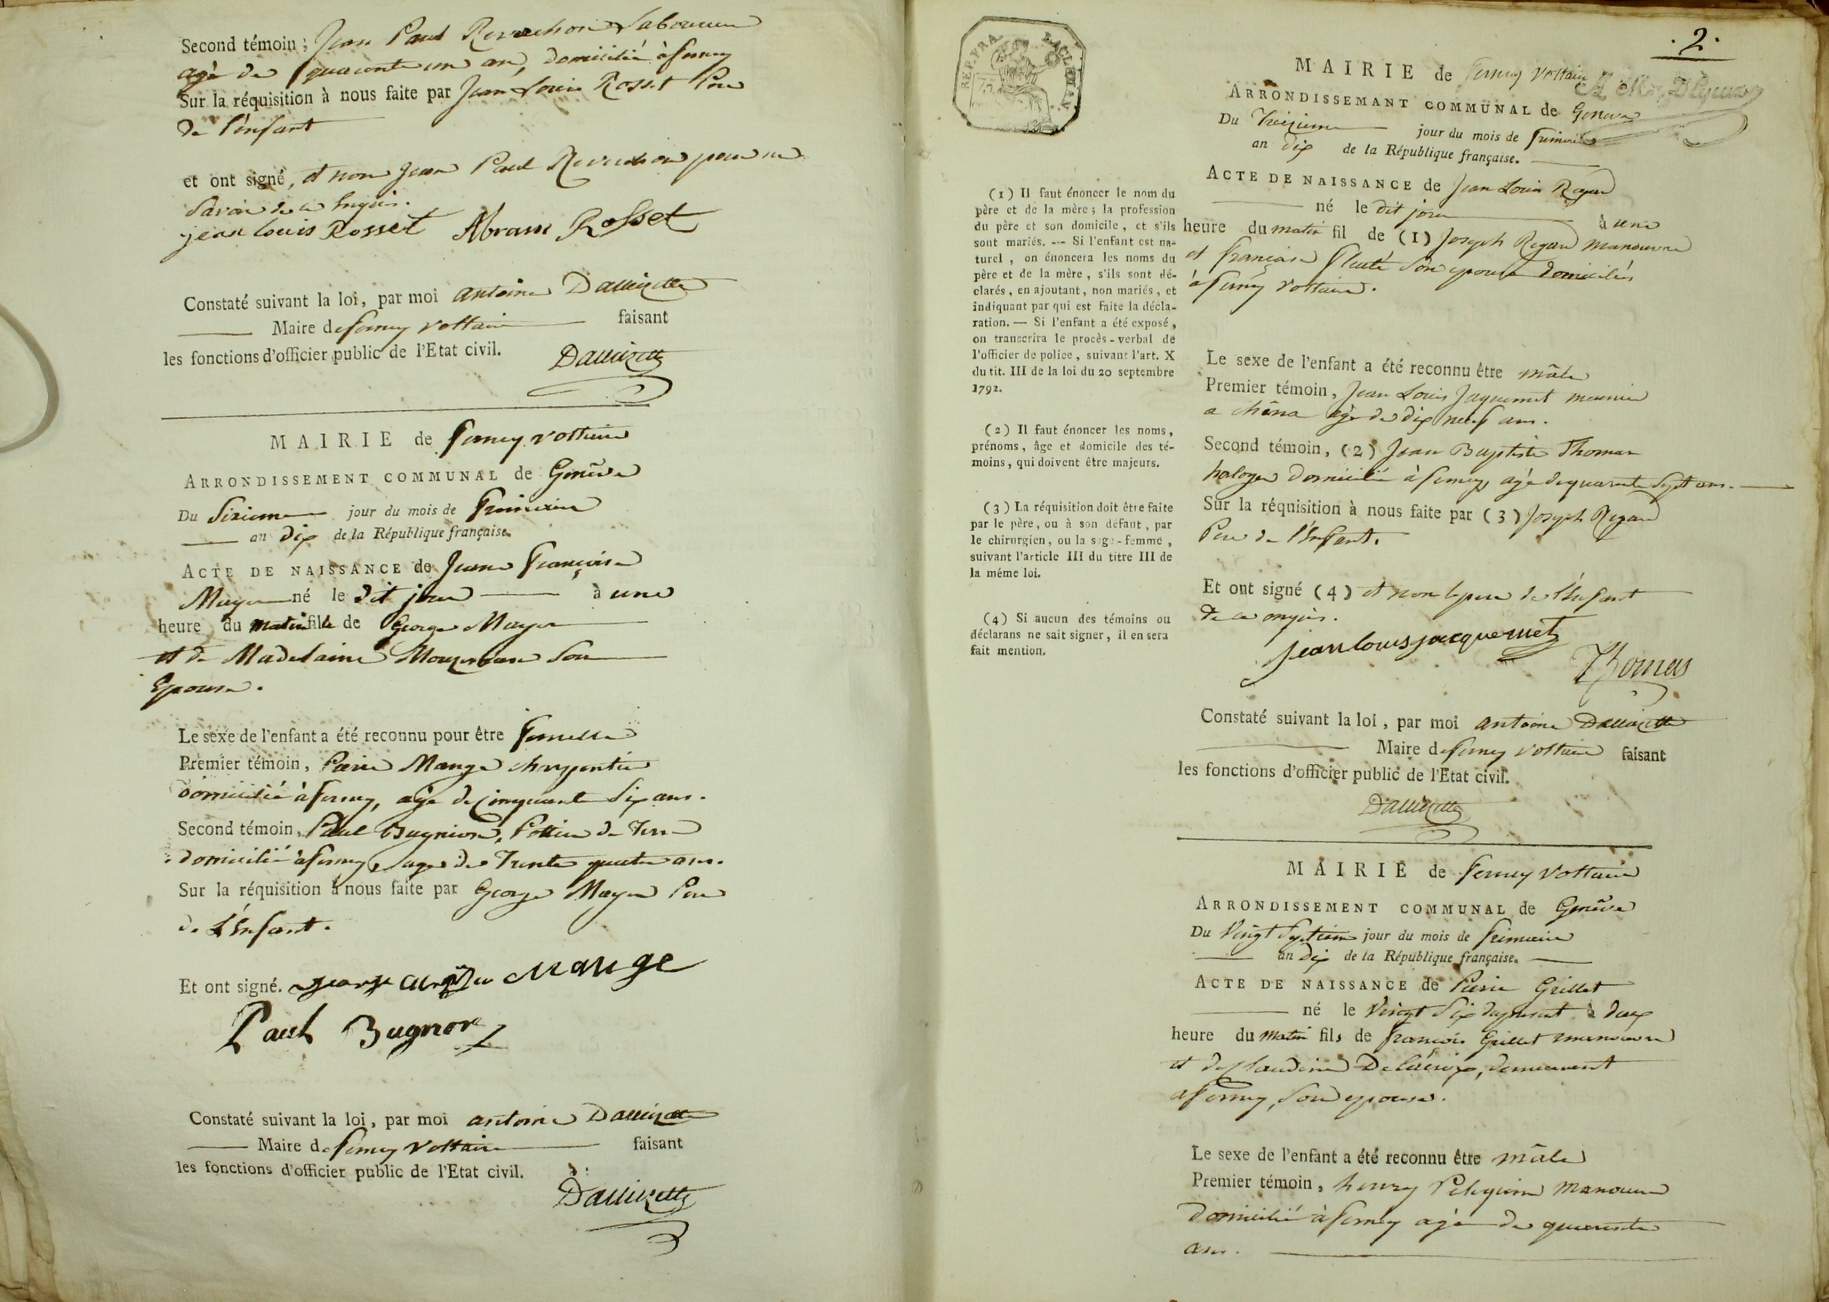 Second témoin ; Jean Paul Revuchon Laboureur
agé de quarante un an, domicilié à ferney
Sur la réquisition à nous faite par Jean Louis Rosset Pere
de l'enfant
et ont signé, et non Jean Paul Revuchon pour ne
Savoir de ce Enquis.
jean louis Rosset Abram Rosset
Constaté suivant la loi, par moi antoine
Maire de ferney voltaire faisant
les fonctions d'officier public de l'Etat civil.
MAIRIE de ferney voltaire
ARRONDISSEMENT COMMUNAL de Genêve
Du Sixieme jour du mois de frimaire
an dix de la République française.
ACTE DE NAISSANCE de Jeanne Françoise
Mayer né le dit jour à une
heure du matin fille de George Mayer
et de Madelaine son
Epouse.
Le sexe de l'enfant a été reconnu pour être femelle
Premier témoin, Pierre Mange charpentier
domicilié à ferney, agé de cinquante Six ans.
Second témoin, Paul Bugnion, Potier de Terre
domicilié à ferney, age de Trente quatre ans.
Sur la réquisition à nous faite par George Mayer Pere
de L'Enfant.
Et ont signé. Mange
Paul Bugnon
Constaté suivant la loi, par moi antoine
Maire de ferney Voltaire faisant
les fonctions d'officier public de l'Etat civil.
.2.
REP. FRA.
MAIRIE de ferney Voltaire
ARRONDISSEMANT COMMUNAL de Geneve
Du Treizieme jour du mois de frimaire
an dix de la République française.
ACTE DE NAISSANCE de Jean Louis Regard
né le dit jour à une
heure du matin fil de (1) Joseph Regard manouvre
et françoise son epouse domiciliés
à ferney voltaire.
(1) Il faut énoncer le nom du
père et de la mère ; la profession
du père et son domicile, et s'ils
sont mariés. — Si l'enfant est na-
turel, on énoncera les noms du
père et de la mère, s'ils sont dé-
clarés, en ajoutant, non mariés, et
indiquant par qui est faite la décla-
ration. — Si l'enfant a été exposé,
on transcrira le procès-verbal de
l'officier de police, suivant l'art. X
du tit. III de la loi du 20 septembre
1792.
(2) Il faut énoncer les noms,
prénoms, âge et domicile des té-
moins, qui doivent être majeurs.
(3) La réquisition doit être faite
par le père, ou à son défaut, par
le chirurgien, ou la sage-femme,
suivant l'article III du titre III de
la méme loi.
(4) Si aucun des témoins ou
déclarans ne sait signer, il en sera
fait mention.
Le sexe de l'enfant a été reconnu être mâle
Premier témoin, Jean Louis Jaquemet meunier
a chêna age de dix neuf ans.
Second témoin, (2) Jean Baptiste Thomas
horloger domicilié à ferney agé de quarante Sept ans.
Sur la réquisition à nous faite par (3) Joseph Regard
Pere de l'Enfant.
Et ont signé (4) et non le pere de l'Enfant
de ce enquis.
jean louis jacquemet
Thomas
Constaté suivant la loi, par moi antoine
Maire de ferney Voltaire faisant
les fonctions d'officier public de l'Etat civil.
MAIRIE de ferney Voltaire
ARRONDISSEMENT COMMUNAL de Genêve
Du Vingt Septieme jour du mois de frimaire
an dix de la République française.
ACTE DE NAISSANCE de Pierre Grillet
né le Vingt Six du présent à deux
heure du matin fils de françois Grillet manouvre
et de Claudine Delacroix, demeurant
a ferney, son epouse.
Le sexe de l'enfant a été reconnu être mâle
Premier témoin, henry Pelegrin manouvre
domicilié à ferney agé de quarante
ans.